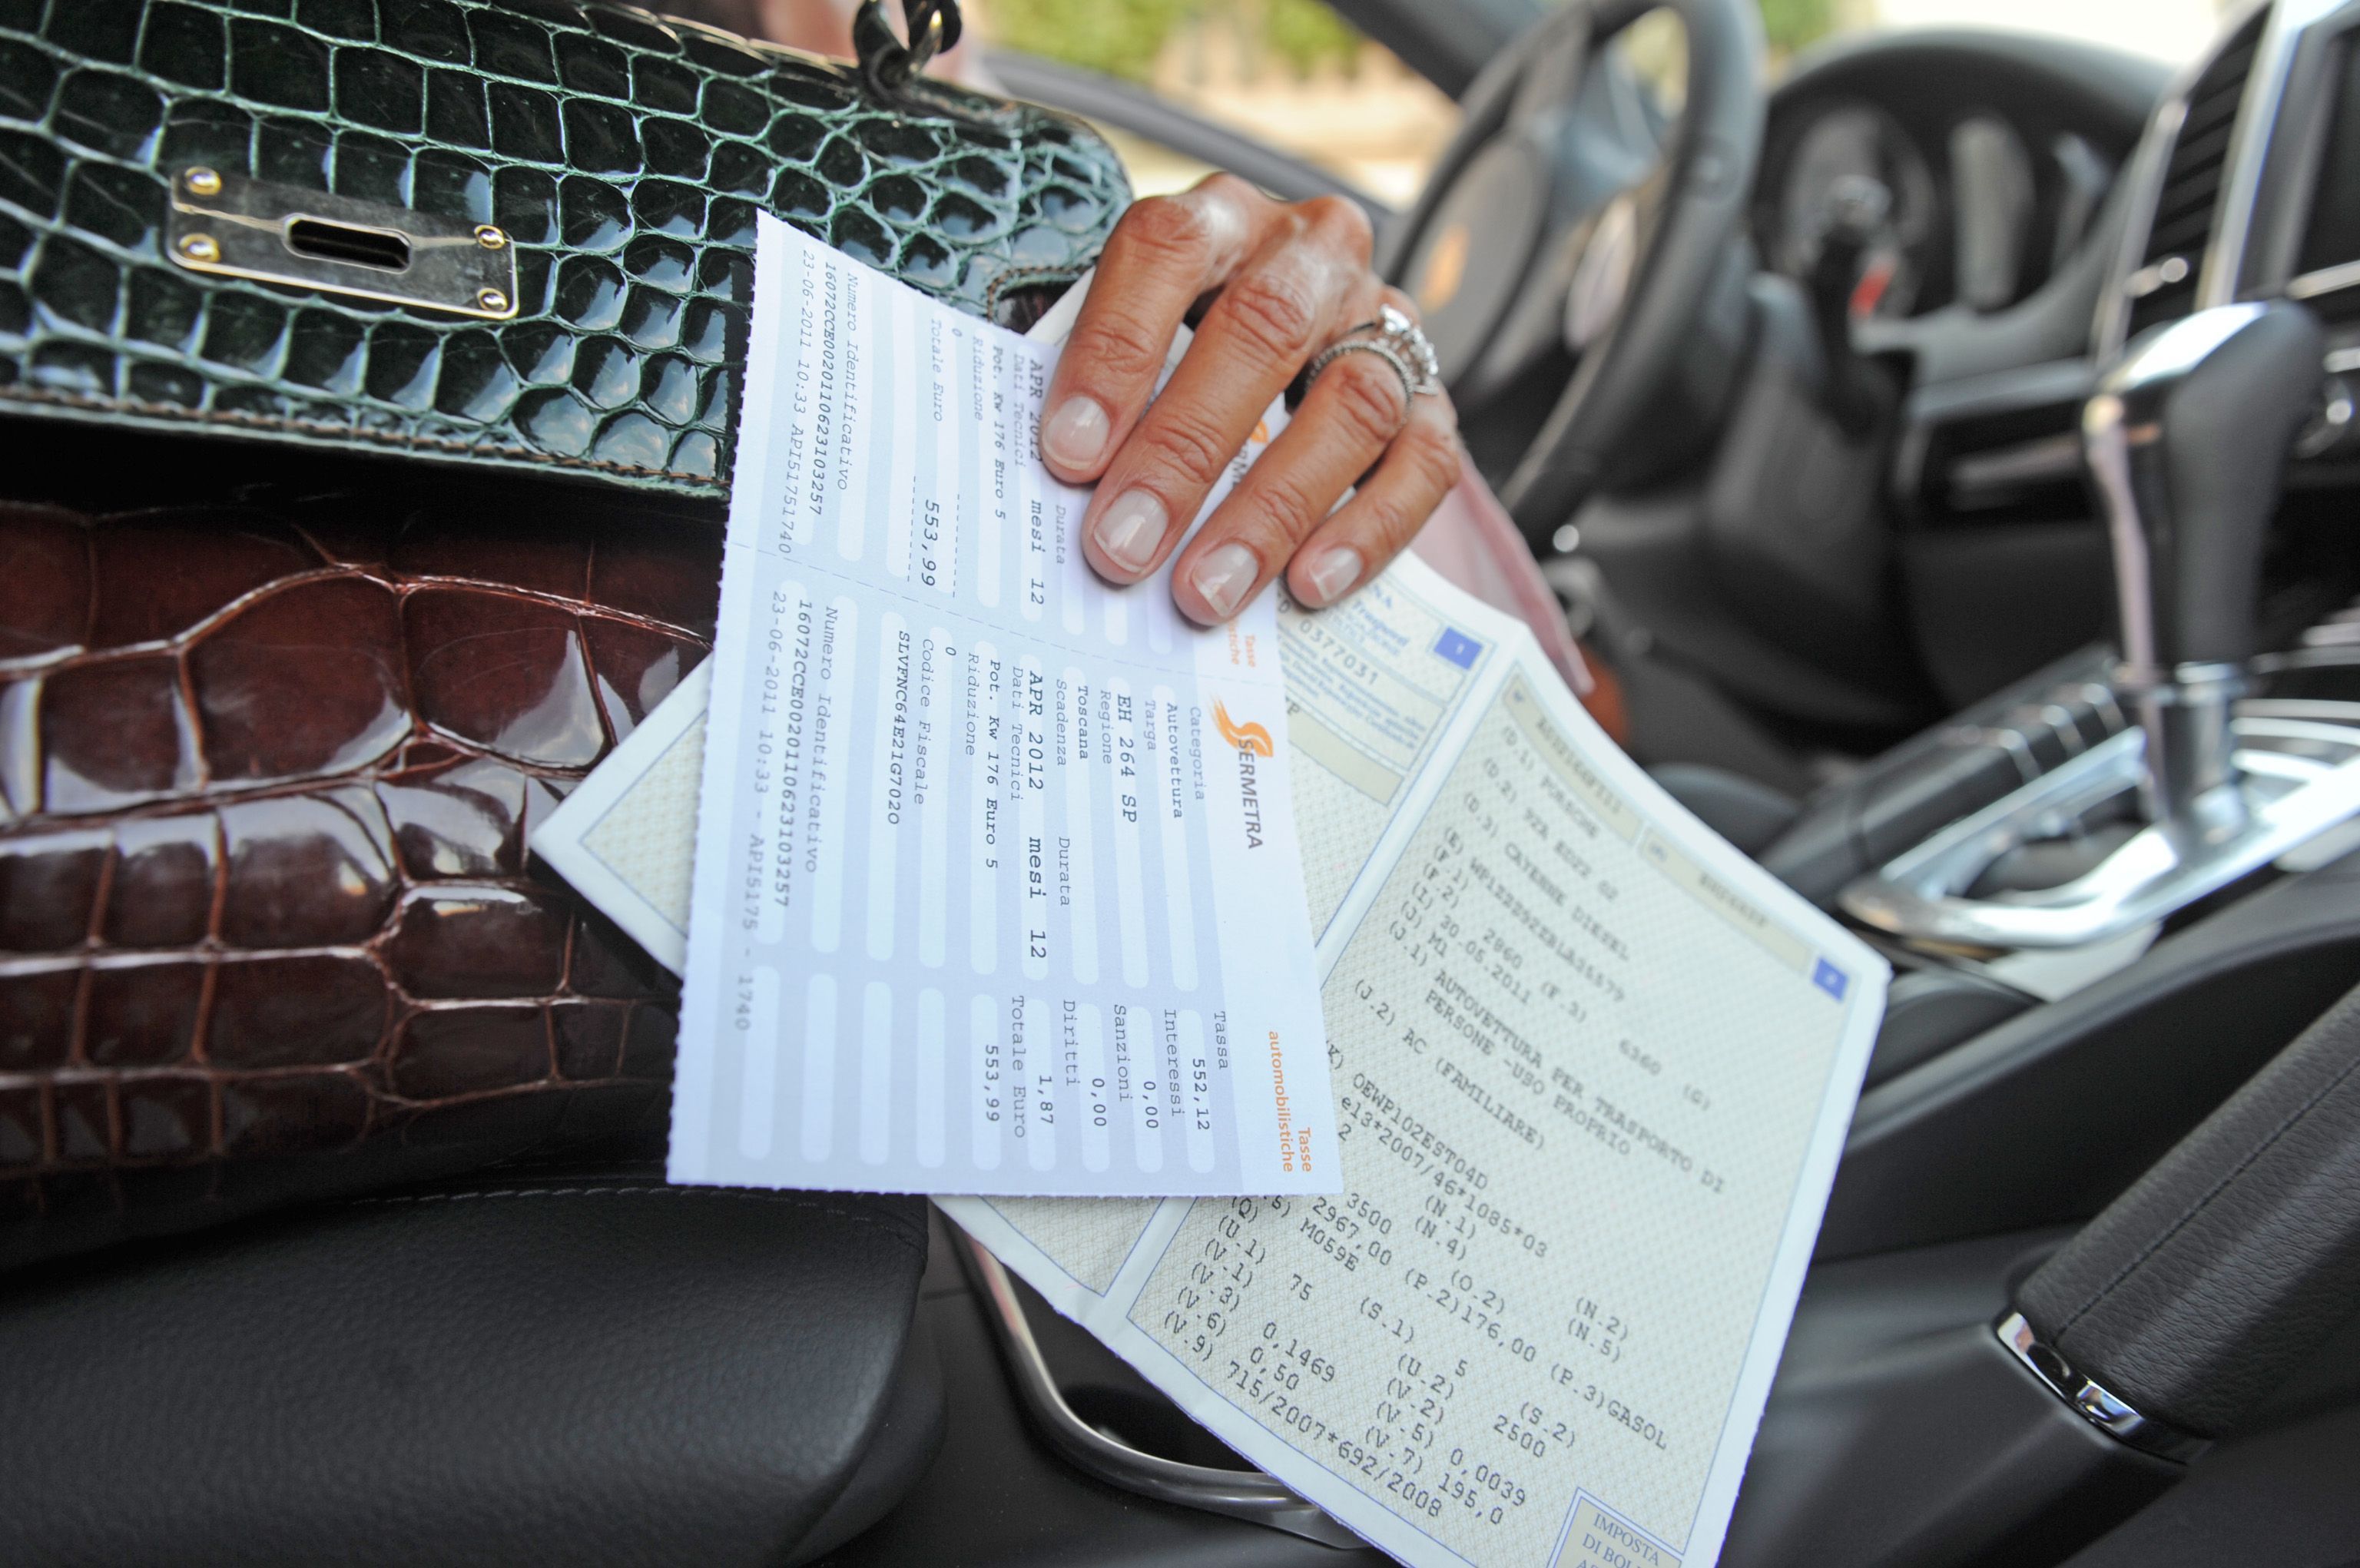 Numero Identificativo
16072CCE0020110623103257
23-06-2011 10:33 API51751740
Totale Euro
553,99
0
Riduzione
Pot. Kw 176 Euro 5
Dati Tecnici
APR 2012 mesi 12
Durata
SERMETRA
Tasse
automobilistiche
Categoria
Autovettura
Targa
EH 264 SP
Regione
Toscana
Scadenza Durata
APR 2012 mesi 12
Dati Tecnici
Pot. Kw 176 Euro 5
Riduzione
0
Codice Fiscale
SLVFNC64E21G702O
Numero Identificativo
16072CCE0020110623103257
23-06-2011 10:33 - API5175 - 1740
Tassa
552,12
Interessi
0,00
Sanzioni
0,00
Diritti
1,87
Totale Euro
553,99
Tasse
0377031
(D.1) PORSCHE
(D.2) 92A
(D.3) CAYENNE DIESEL
(E)
(F.1)
(F.2) 2860 (F.3) 6360 (G)
(I) 30.05.2011
(J) M1
(J.1) AUTOVETTURA PER TRASPORTO DI
PERSONE -USO PROPRIO
(J.2) AC (FAMILIARE)
OEWP102EST04D
e13*2007/46*1085*03
2 (N.1) (N.2)
3500 (N.4) (N.5)
2967,00 (O.2)
(P.2)176,00 (P.3)GASOL
M059E
(Q) (S.1) 5 (S.2)
(U.1) 75 (U.2) 2500
(V.1) (V.2)
(V.3) 0,1469 (V.5) 0,0039
(V.6) 0,50 (V.7) 195,0
(V.9) 715/2007*692/2008
IMPOSTA